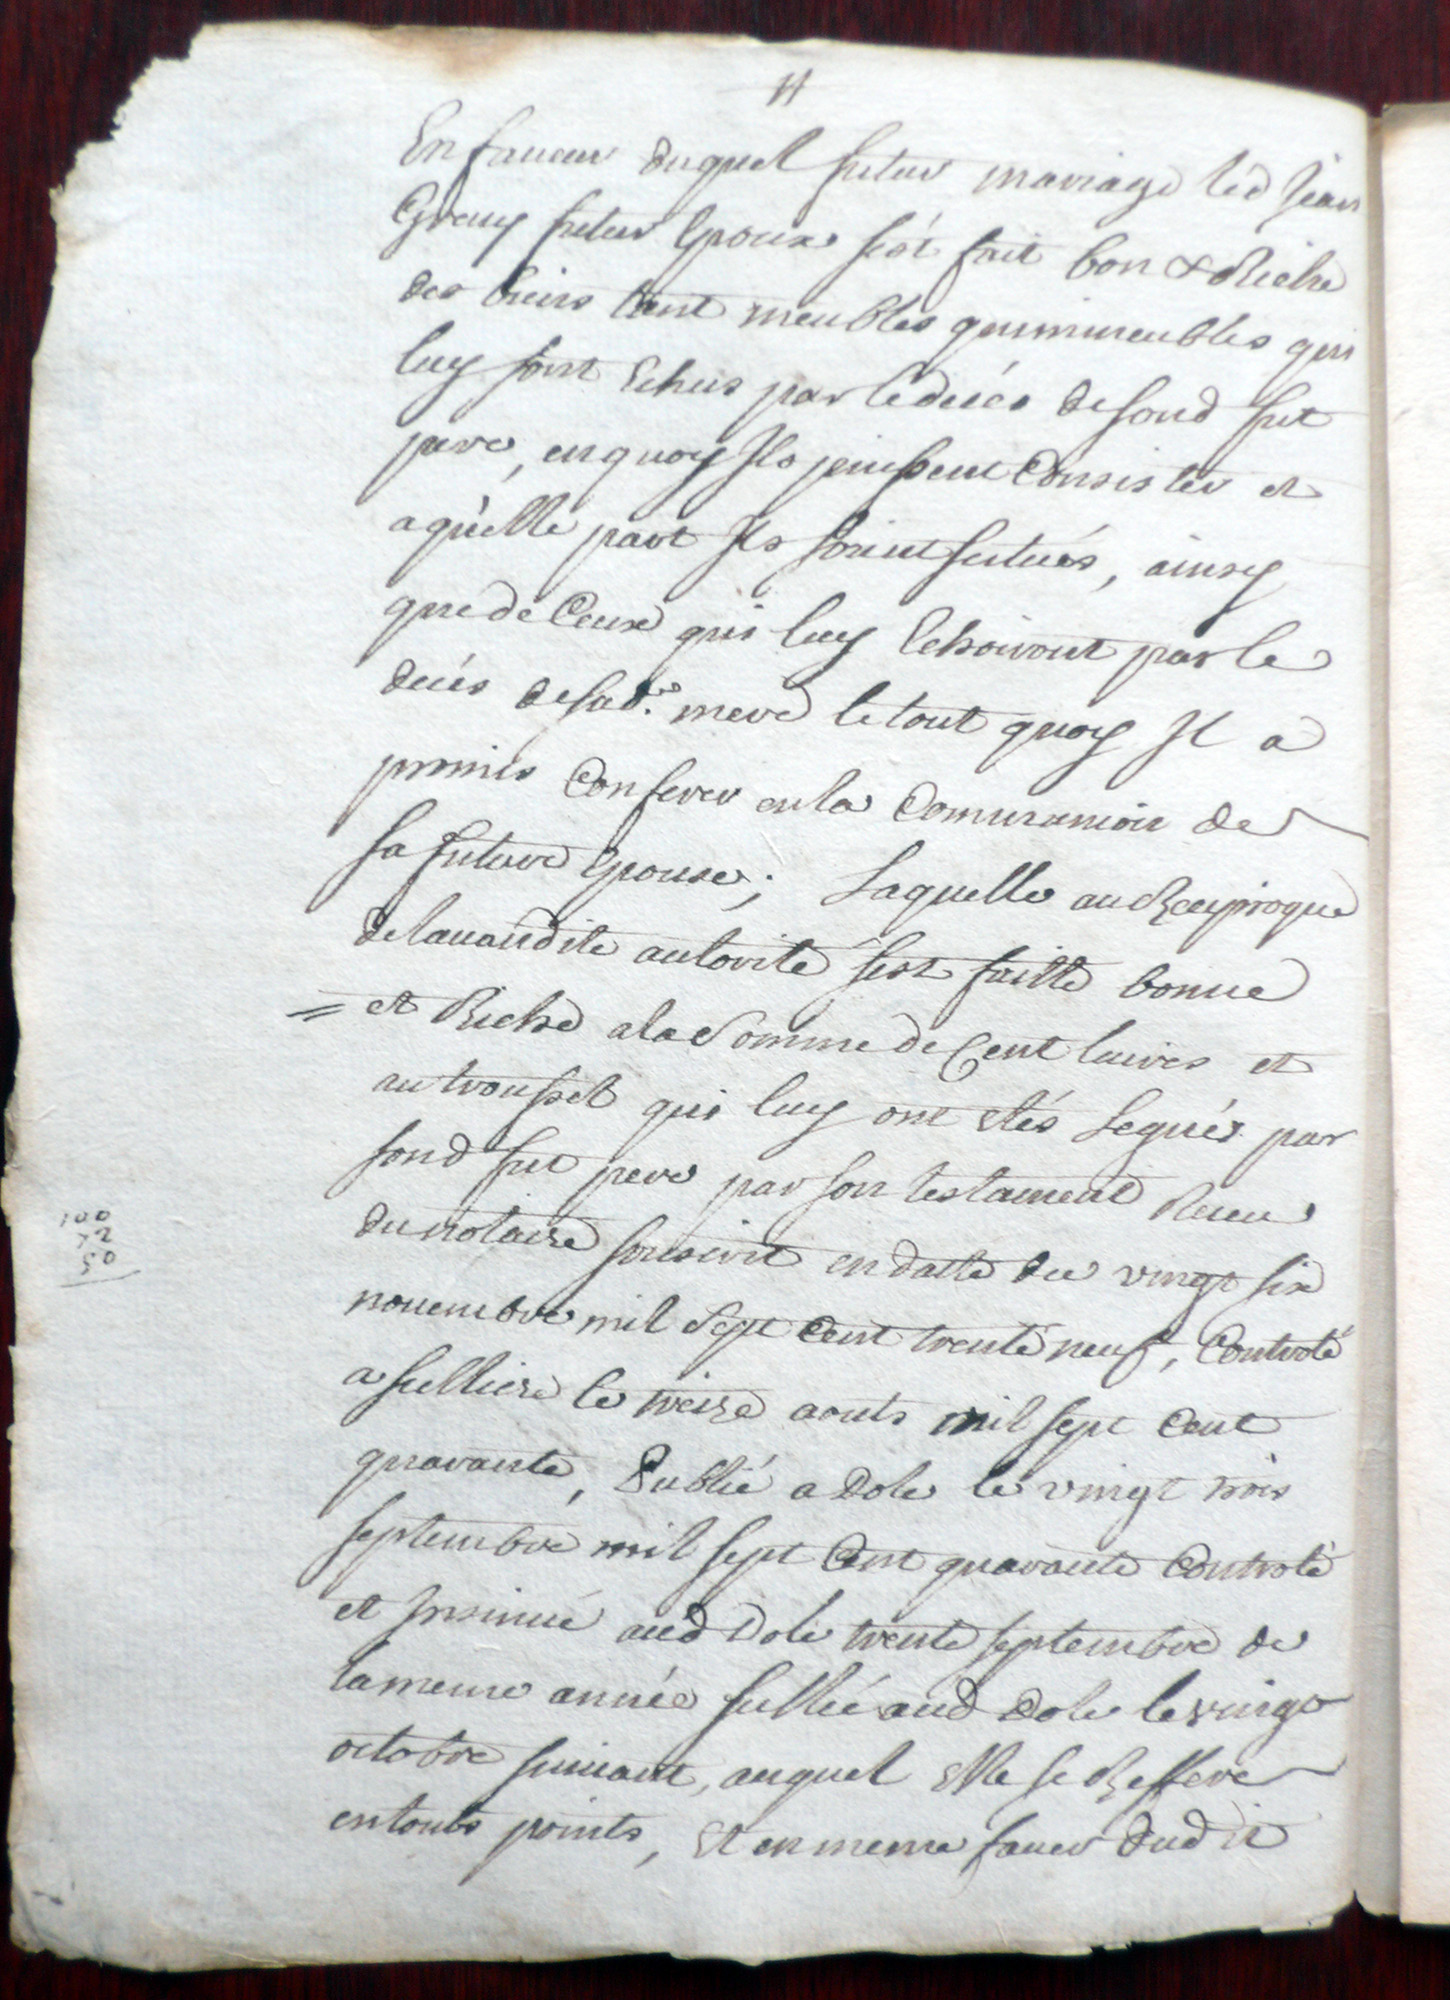 En faueur duquel futur mariage led Jean
Grauy futur Epoux s'est fait bon & Riche
des biens tant meubles qu'immeubles qui
luy sont Echus par le decés de fond fut
pere, en quoy Ils puissent Consister et
a quelle part Ils soient scitués, ainsy
que de Ceux qui luy Echoiront par le
decés de sad.e mere le tout quoy Il a
promis Conferer en la Communion de
sa future Epouse; Laquelle au Reciproque
de lauandite autorité s'est faitte bonne
= et Riche a la Somme de Cent liures et
au troussel qui luy ont étés Legués par
fond fut pere par son testament Receu
du notaire souscrit en datte du vingt six
nouembre mil Sept Cent trente neuf, Controlé
a selliere le treize aouts mil sept Cent
quarante, Publié a Dole le vingt trois
septembre mil sept Cent quarante Controlé
et Insinué aud Dole trente septembre de
la meme année publié aud Dole le vingt
octobre suiuant, auquel Elle se Reffere
en touts points, Et en meme faueur dudit
100
72
50